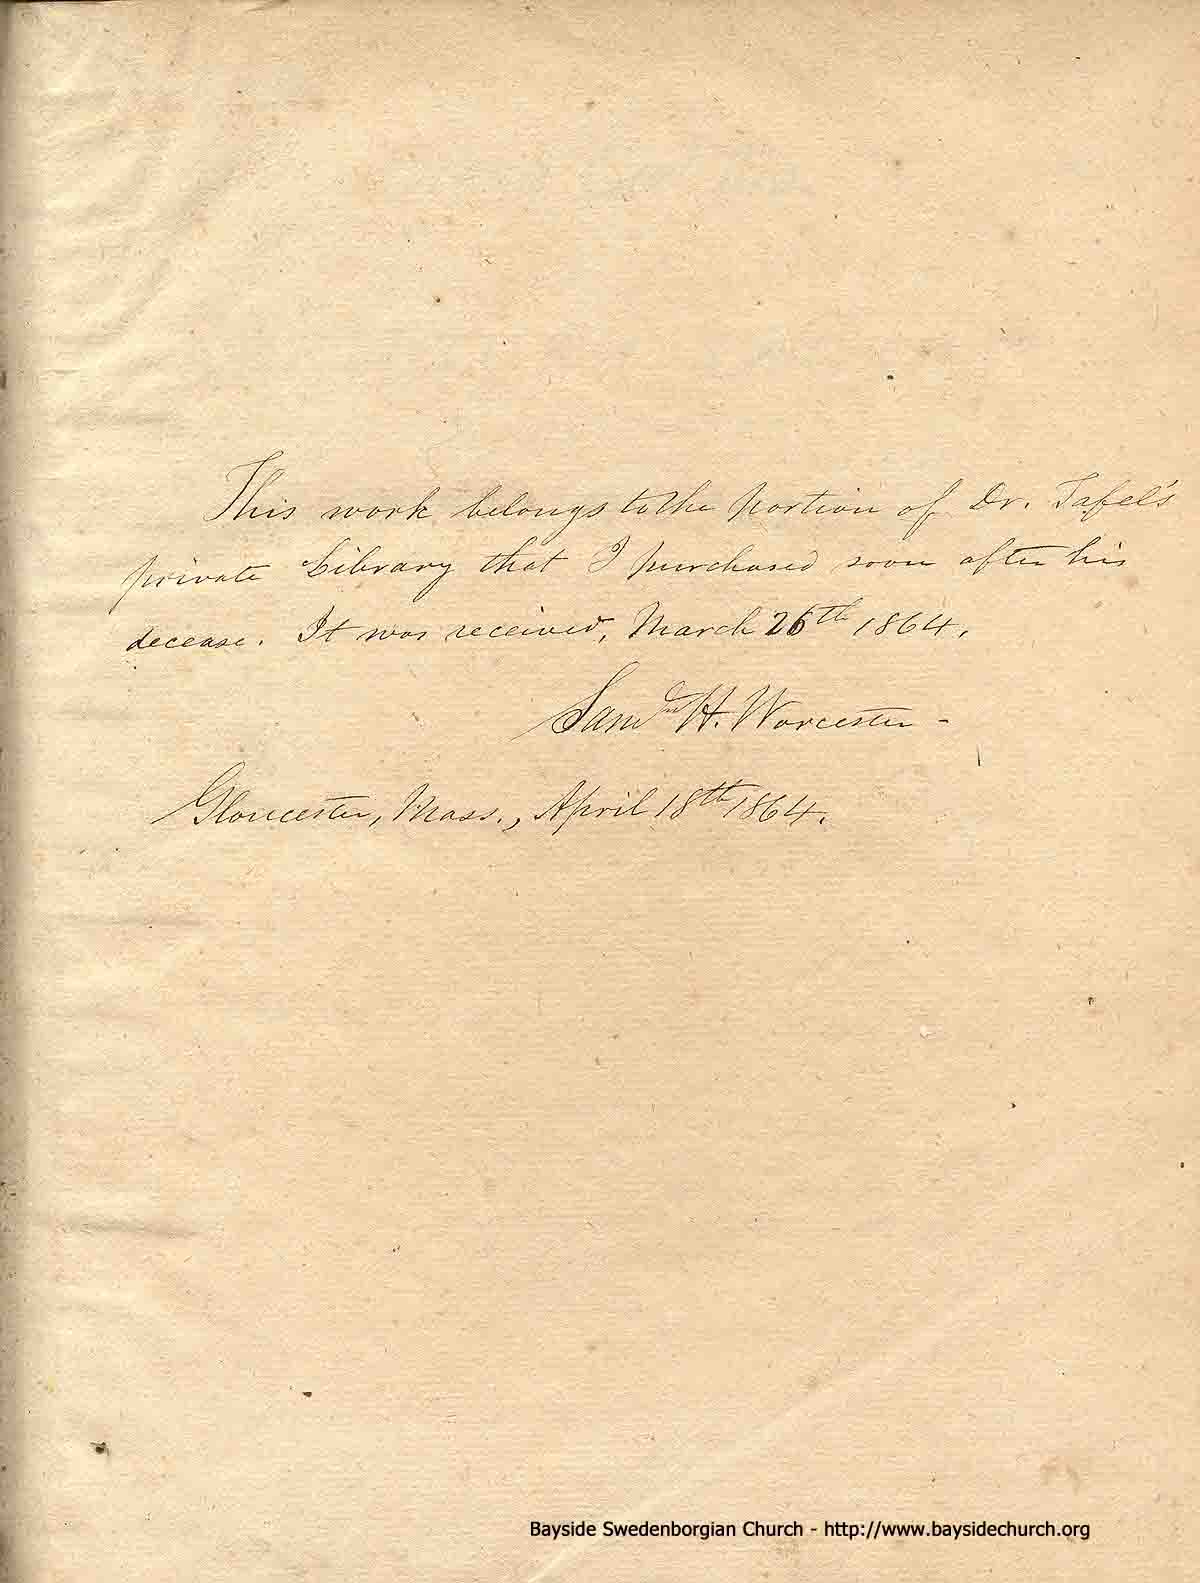 This work belongs to the portion of Dr. Tafel's
private Library that I purchased soon after his
decease. It was received, March 26th 1864.
Sam H. Worcester -
Gloucester, Mass., April 18th 1864.
Bayside Swedenborgian Church - http://www.baysidechurch.org